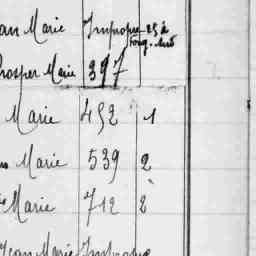 an Marie Impropre 25 à
rosper Marie 397
Marie 452 1
Marie 539 2
Marie 712 2
Jean Marie Impropre